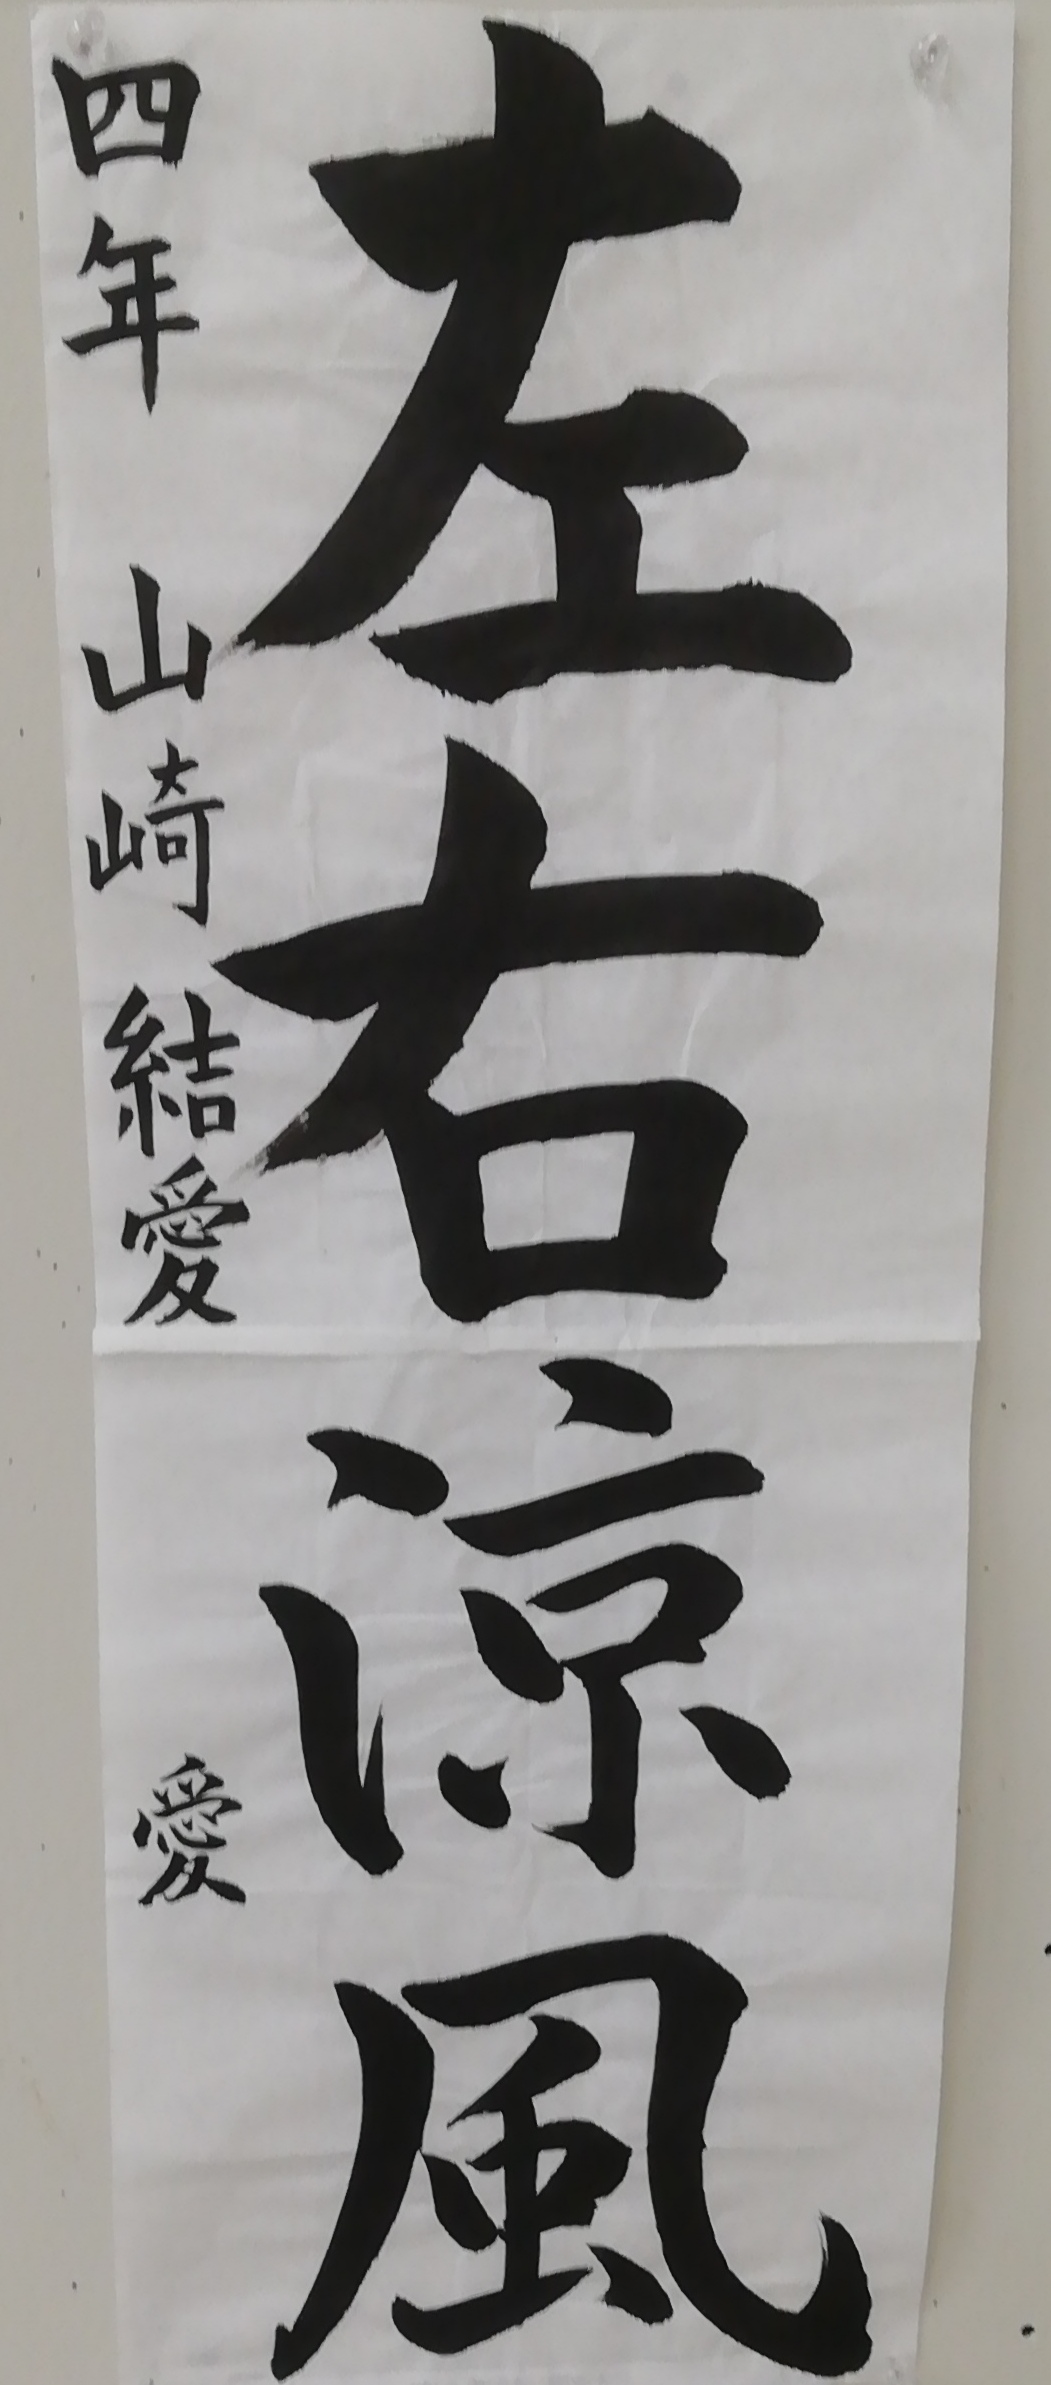 左右涼風
四年 山崎結愛 愛